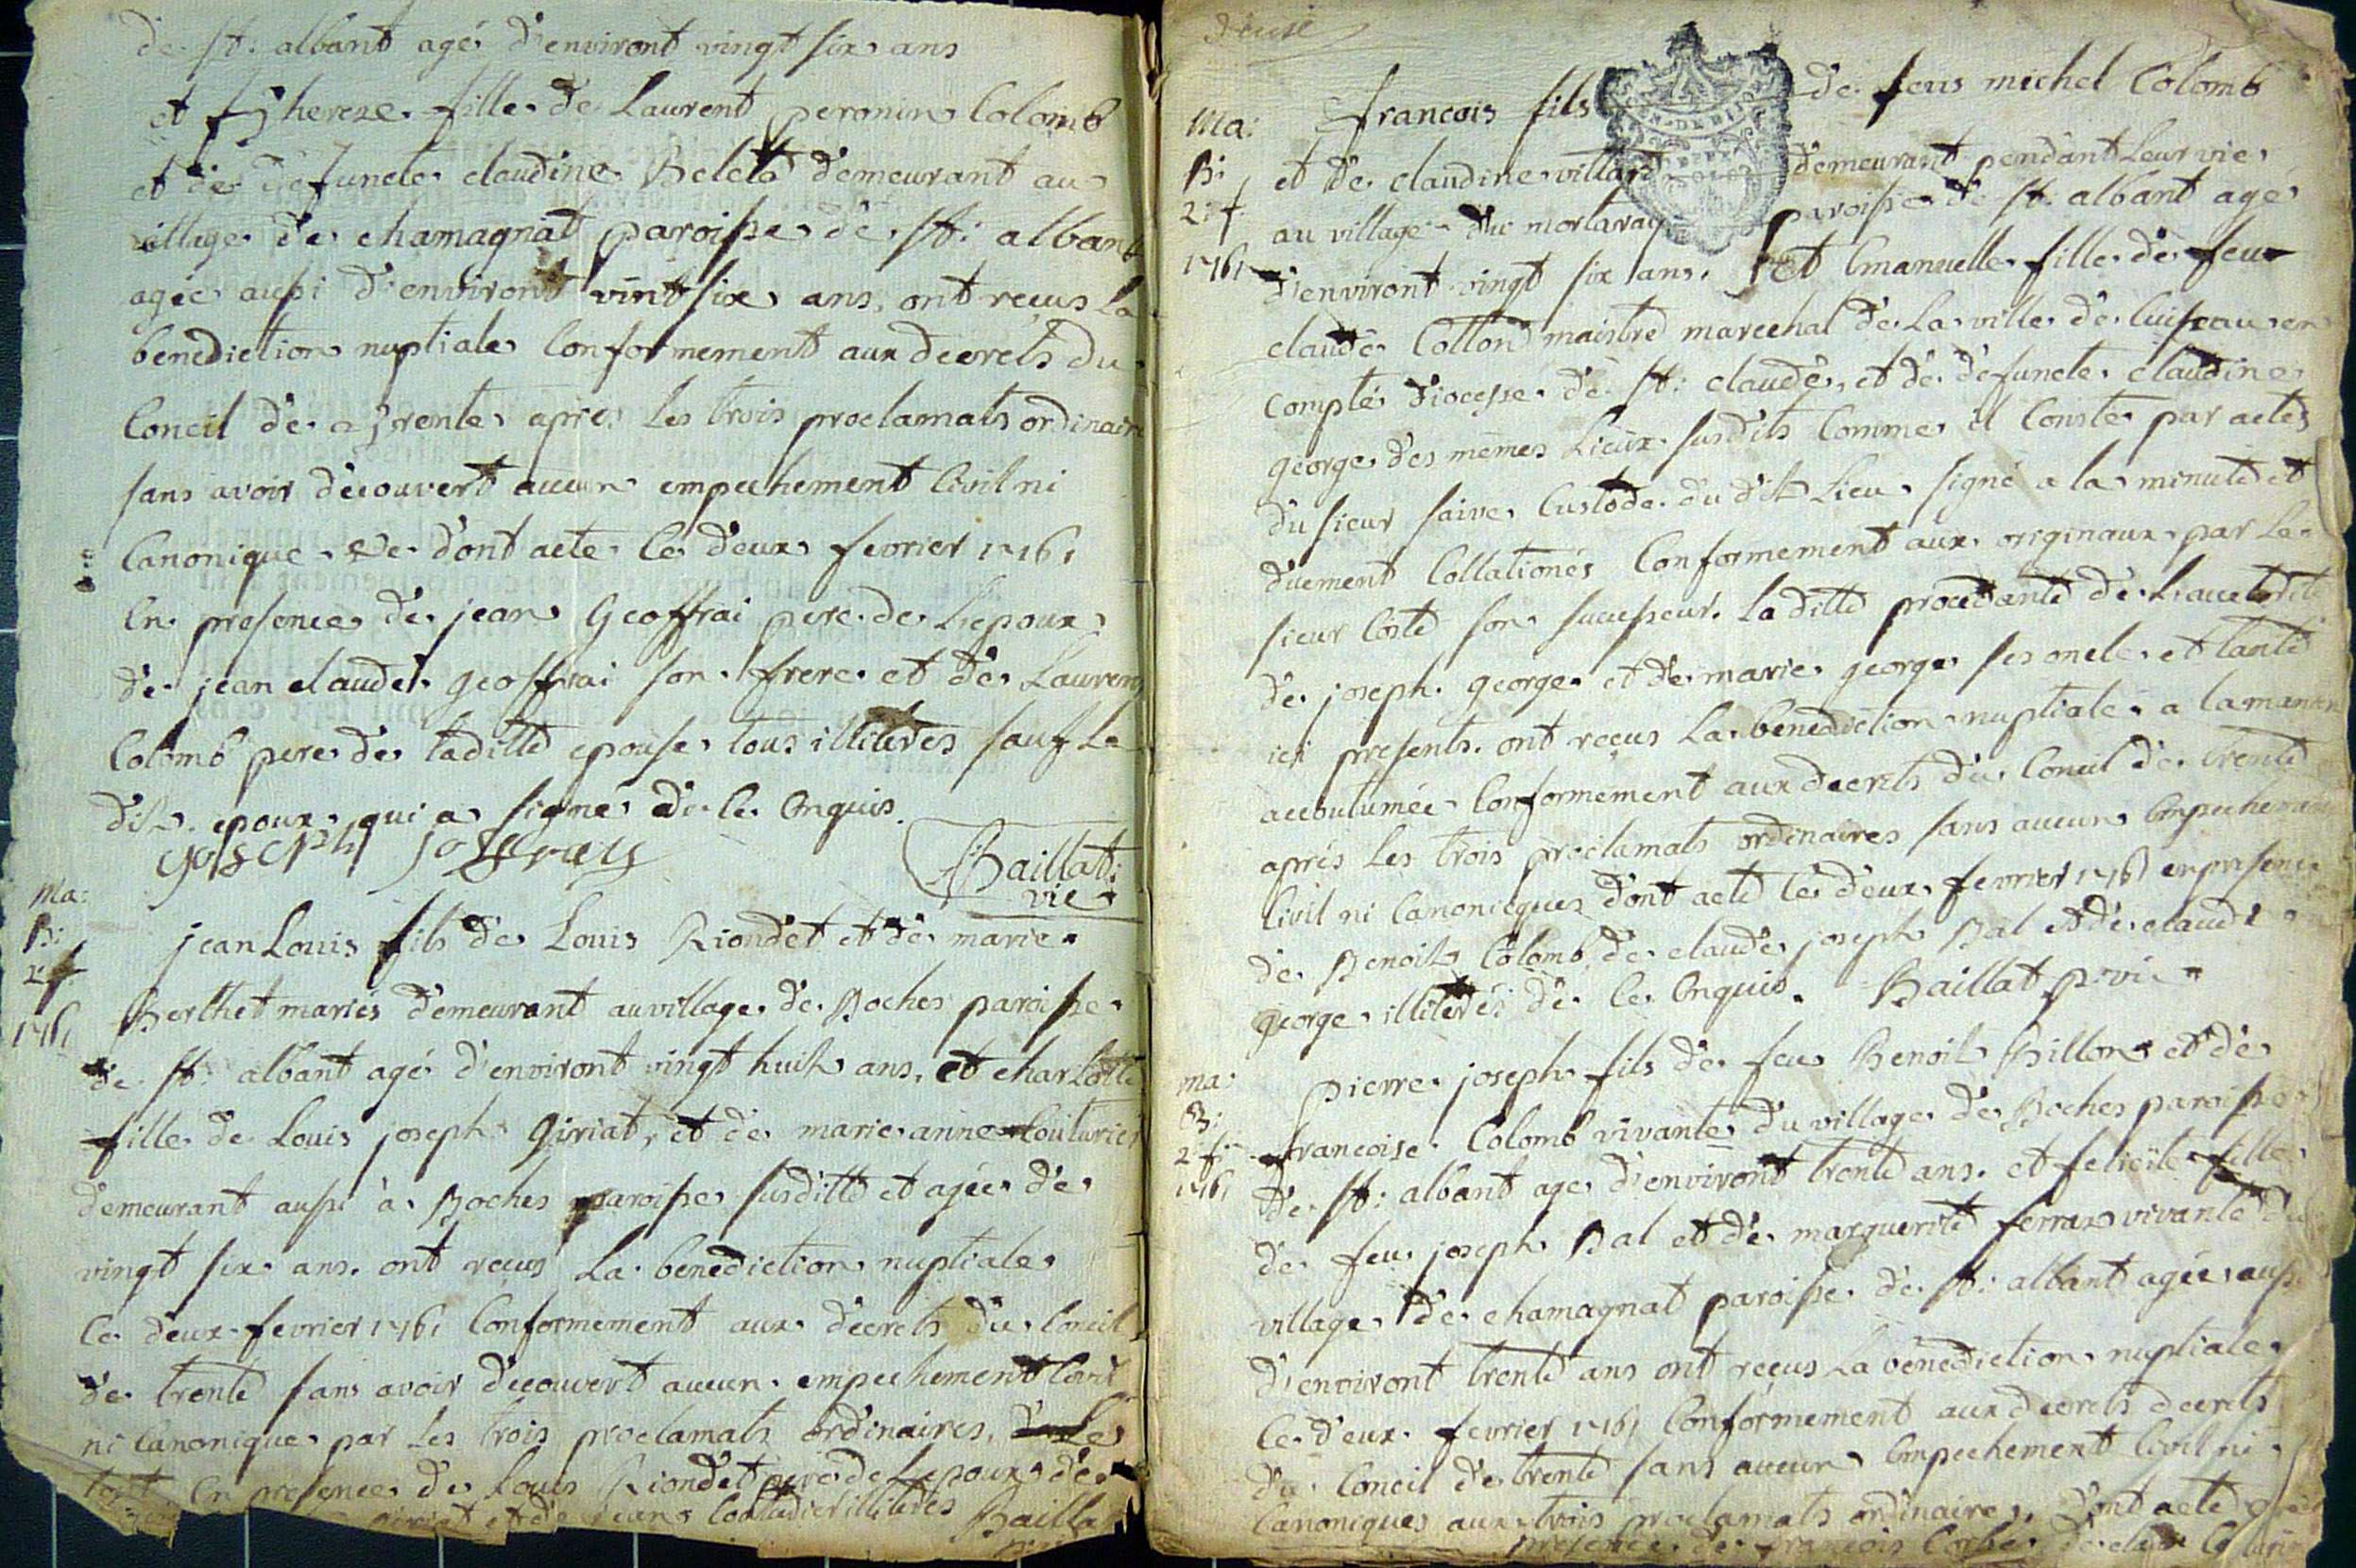 de st: albant agé d'environt vingt six ans
et thereze fille de Laurent peronin Colomb
et de defuncte claudine demeurant au
village de chamagnat paroisse de st: albant
agée aussi d'environt vint six ans, ont reçus la
benediction nuptiale Conformement aux decrets du
Concil de trente après les trois proclamats ordinaires
sans avoir decouvert aucun empechement Civil ni
Canonique dont acte ce deux fevrier 1761
en presence de jean Geoffrai pere de l'epoux
de jean claude geoffrai son frere et de Laurent
Colomb pere de laditte epouse tous illiteres sauf le
dit epoux qui a signé de ce enquis.
joseph joffray
Baillat
vic
Ma:
B:
2 f
1761
jean Louis fils de Louis Riondet et de marie
Berthet mariés demeurant au village de Boches paroisse
de st: albant agé d'environt vingt huit ans, et charlotte
fille de Louis joseph Giriat, et de marie anne Couturier
demeurant aussi à Boches paroisse susditte et agée de
vingt six ans. ont reçus la benediction nuptiale
ce deux fevrier 1761 Conformement aux decrets du Concil
de trente sans avoir decouvert aucun empechement Civil
ni Canonique par les trois proclamats ordinaires.
en presence de Louis Riondet pere de l'epoux de
giriat et de illiteres Baillat
françois fils de feus michel Colomb
Ma:
B:
2: f
1761
et de claudine villard demeurant pendant leur vie
au village du mortaray paroisse de st: albant agé
d'environt vingt six ans. et Emanuelle fille de feu
claude Collond maistre marechal de la ville de Cuiseau en
Compté diocesse de st: claude, et de defuncte claudine
george des mêmes lieux susdits Comme il Conste par actes
du sieur saive Custode du dit lieu signé a la minute et
duement Collationés Conformement aux originaux par le
sieur Coste son successeur. la ditte procedante de l'auctorité
de joseph george et de marie george ses oncle et tante
ici presents. ont reçus la benediction nuptiale a la maniere
accoutumée Conformement aux decrets du Concil de trente
après les trois proclamats ordinaires sans aucun empechement
Civil ni Canonicques dont acte ce deux fevrier 1761 en presence
de Benoit Colomb, de claude joseph Bal et de claude
george illiterés de ce enquis. Baillat p. vic
ma:
B:
2 f
1761
pierre joseph fils de feu Benoit Billon et de
francoise Colomb vivante du village de Boches paroisse
de st: albant age d'environt trente ans. et felicite fille
de feu joseph Bal et de marguerite ferrax vivante du
village de chamagnat paroisse de st: albant agée aussi
d'environt trente ans ont reçus la benediction nuptiale
ce deux fevrier 1761 Conformement aux decrets decrets
du Concil de trente sans aucun empechement Civil ni
Canoniques aux trois proclamats ordinaires. dont acte
presence de francois